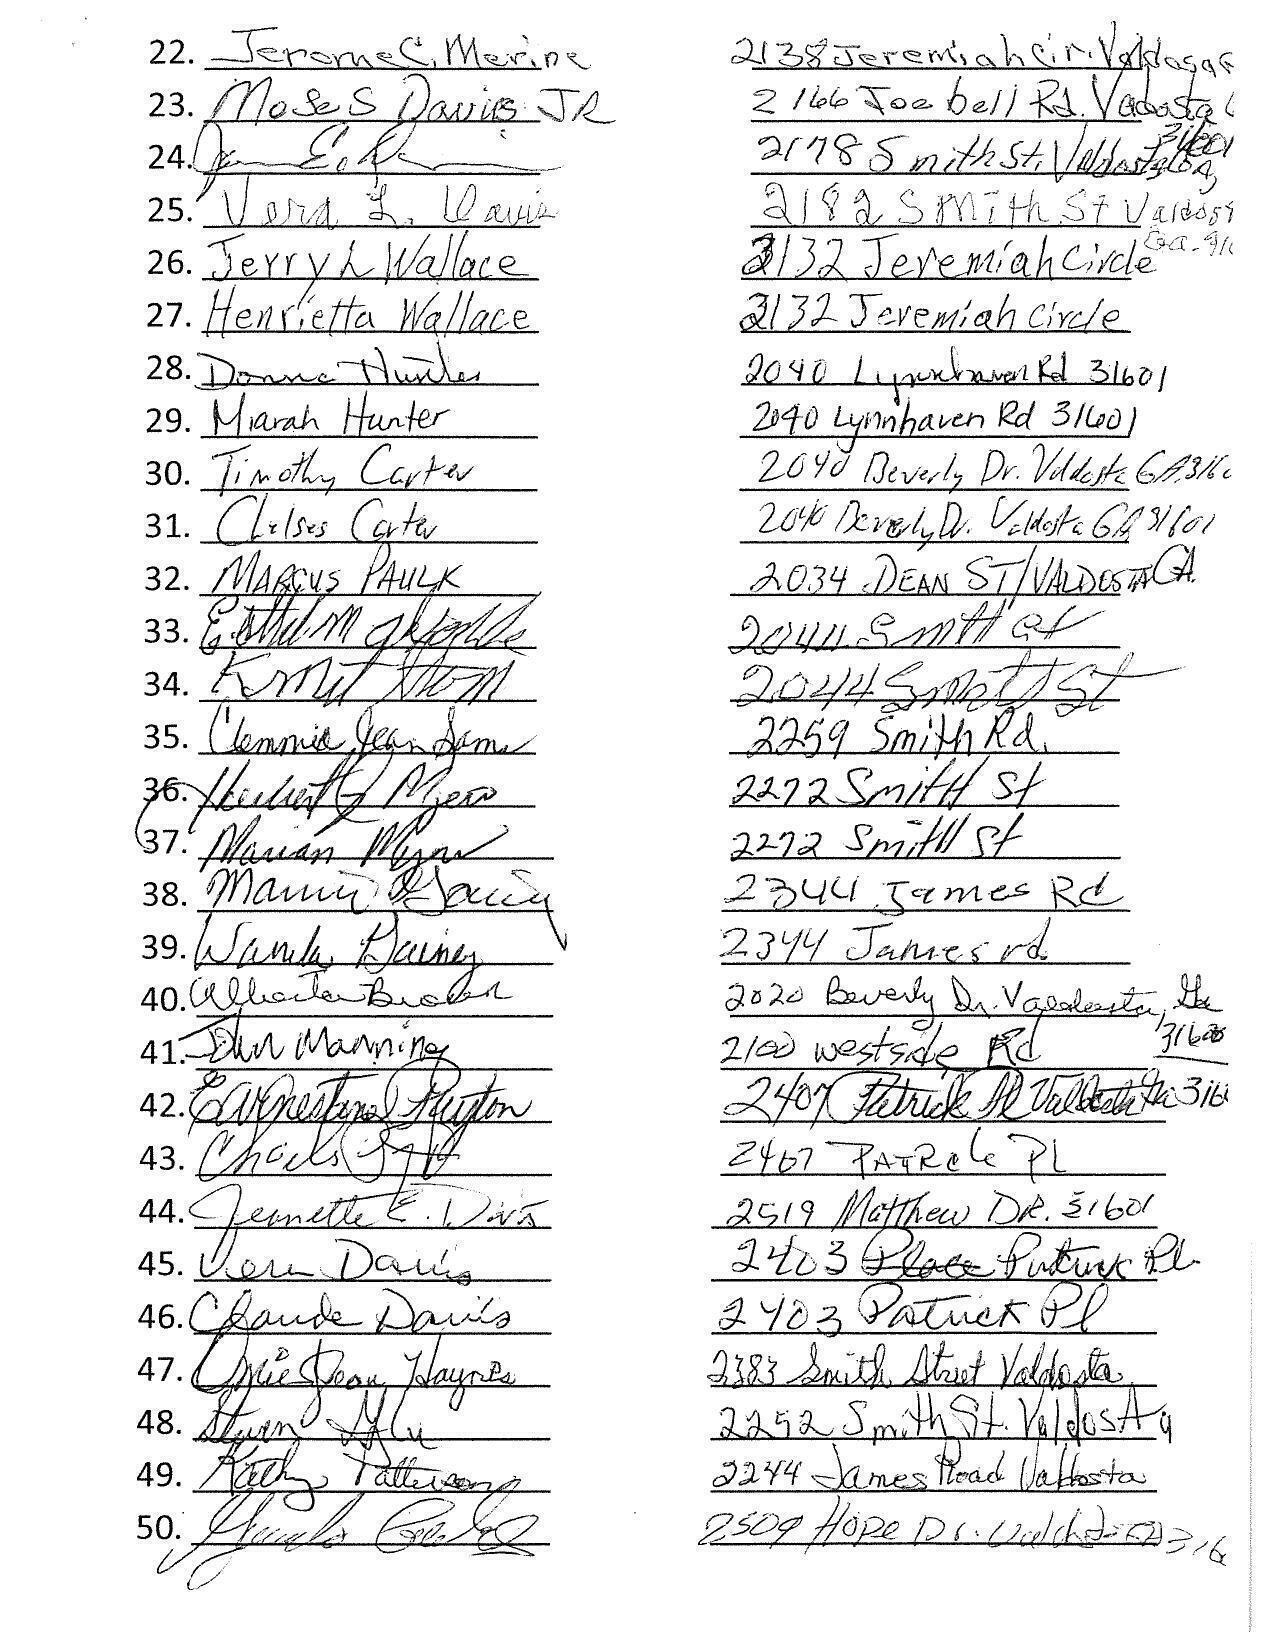 22. Jerome C. Merine 2138 Jeremiah Cir. Valdosa
23. Moses Davis JR 2166 Joe bell Rd. Valdosta
31601
24. 2178 Smith St. Valdosta, Ga,
25. Vera L. Davis 2182 Smith St Valdost
Ga. 31
26. Jerry L Wallace 2132 Jeremiah Circle
27. Henrietta Wallace 2132 Jeremiah Circle
28. Donna Hunter 2040 Lynnhaven Rd 31601
29. Miarah Hunter 2040 Lynnhaven Rd 31601
30. Timothy Carter 2040 Beverly Dr. Valdosta GA 316
31. Chelsea Carter 2040 Beverly Dr. Valdosta GA 31601
32. MARCUS PAULK 2034 DEAN ST/VALDOSTA GA.
33. 2044 Smith St
34. 2044 Smith St
35. Clemmie Jean Sams 2259 Smith Rd.
36. Herbert Myers 2272 Smith St
37. Marian Myers 2272 Smith St
38. 2344 James Rd
39. Wanda Gainey 2344 James rd
40. Alberta Brown 2020 Beverly Dr. Valdosta, Ga
31600
41. Manning 2100 westside Rd
42. Earnestine 2407 Patrick Pl Valdosta Ga 316
43. Charles 2407 PATRCk Pl
44. Jeanette E. Davis 2519 Matthew DR. 31601
45. Vera Davis 2403 Place Patrick Pl.
46. Claude Davis 2403 Patrick Pl
47. Jean Haynes 2383 Smith Street Valdosta
48. 2252 Smith St. Valdosta
49. Kathy Patterson 2244 James Road Valdosta
50. 2509 Hope Dr. 316